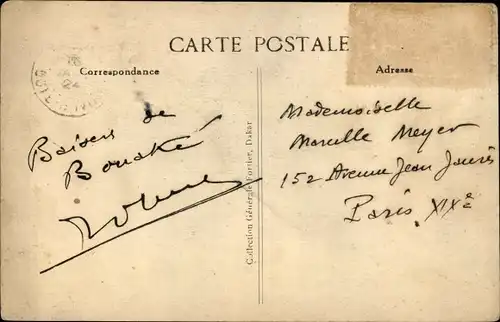 CARTE POSTALE
Correspondance
Adresse
Baisers de
Bouaké
Mademoiselle
Marcelle Meyer
152 Avenue Jean Jaurès
Paris XIXe
Collection Générale Fortier, Dakar